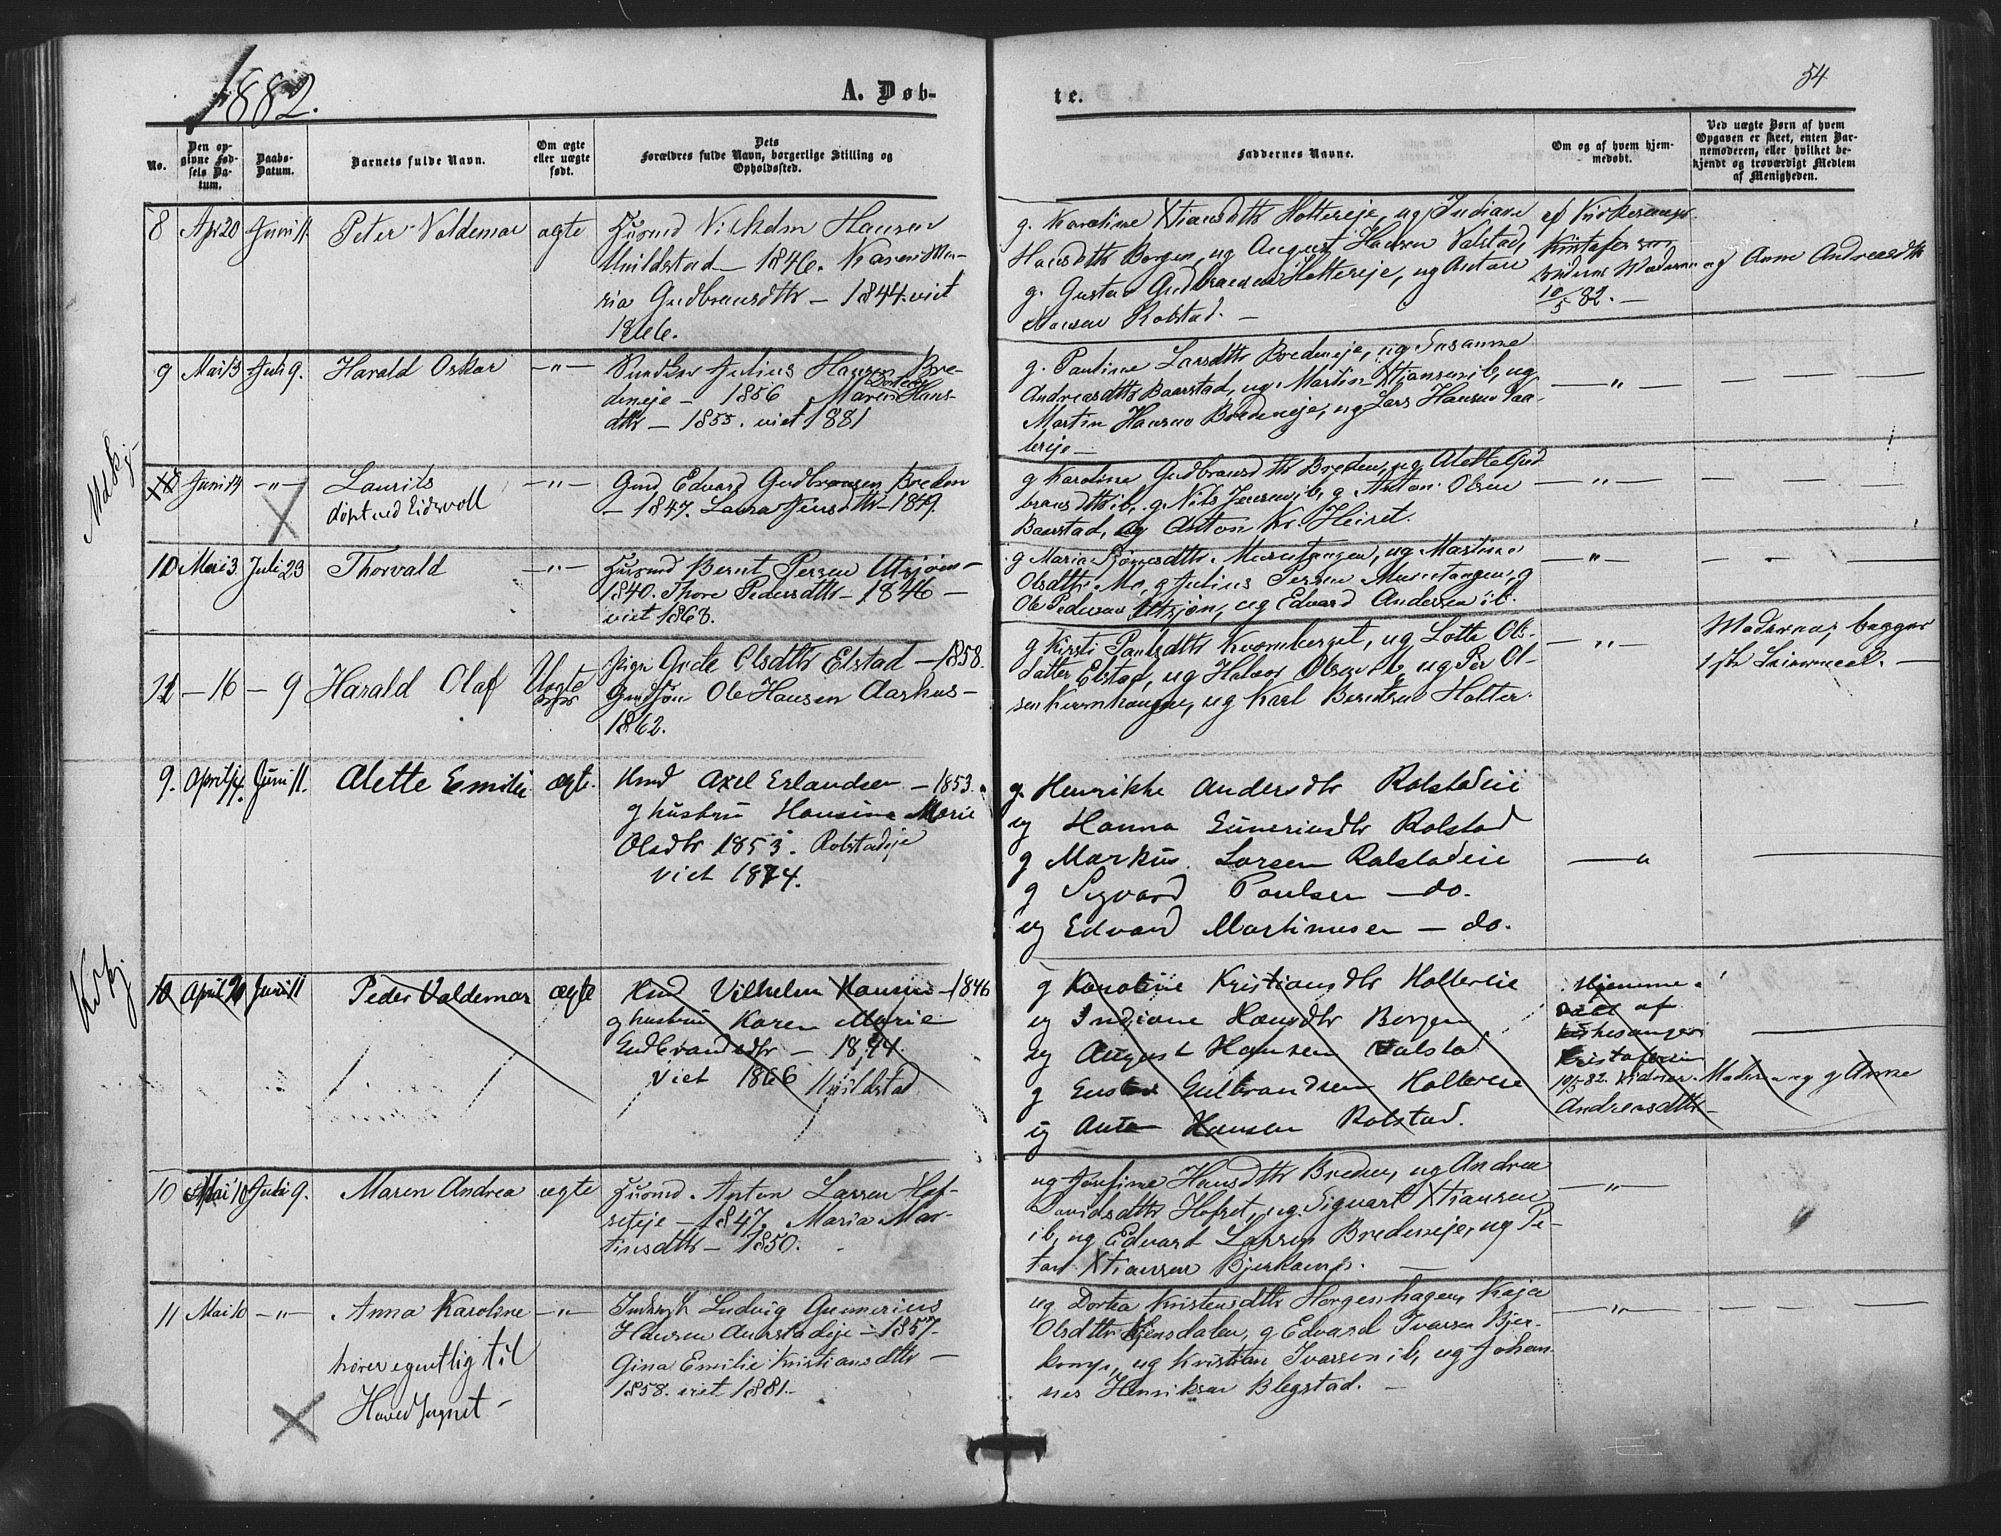 1882.
A. Døb-
te.
54
No.
Den op-
givne Fød-
sels Da-
tum.
Daabs-
Datum.
Barnets fulde Navn.
Om ægte
eller uægte
født.
Dets
Forældres fulde Navn, borgerlige Stilling og
Opholdssted.
Faddernes Navne.
Om og af hvem hjem-
medøbt.
Ved uægte Børn af hvem
Opgaven er skeet, enten Bar-
nemoderen, eller hvilket be-
kjendt og troværdigt Medlem
af Menigheden.
8 Apr 20 Juni 11 Peter Valdemar ægte
Husmd Vilhelm Hansen
Hvildstad - 1846. Karen Ma-
ria Gudbransdtr - 1844. viet
1866.
g. Karoline Xtiansdtr Holtereje, ug Indiane
Hansdtr Borgen, ug August Hansen Valstad,
g. Gustav Gudbransen Holtereje, ug Anton
Hansen Rolstad. -
af Kirkesanger
Kristofersen
10/5 82. -
og Anne Andreasdtr
9 Mai 3 Juli 9. Harald Oskar -"-
Julius Hansen Bre-
deneje - 1856 Maren Dortea Hans-
dtr - 1855. viet 1881
g. Pauline Larsdtr Bredeneje, ug Susanne
Andreasdtr Baarstad, ug Martin Xtiansen ib, ug
Martin Hansen Bredeneje, ug Lars Hansen Saa-
tereje -
- " -
Juni 14 -"- Laurits -"-
døpt ved Eidsvoll
Gmd Edvard Gudbransen Breden
- 1847. Laura Jensdtr - 1849.
g Karoline Gudbransdtr Breden, ug Alette Gud
bransdtr ib, g. Nils Jensen ib, g Anton Olsen
Baarstad, ug Anton Kr. Heiret.
- " -
10 Mai 3 Juli 23 Thorvald -"-
Husmd Bernt Persen Utsjøen -
1840. Thore Pedersdtr - 1846 -
viet 1868.
g Maria Bjørnsdtr Murutangen, ug Martine
Olsdtr Mo, g Julius Persen Murutangen, g
Ole Pedersen Utsjøn, ug Edvard Andersen ib.
"
11 - 16 - 9 Harald Olaf Uægte
Pige Gude Olsdtr Elstad - 1858.
Ole Hansen Aarhus -
1862.
g Kirsti Paulsdtr Kvernberget, ug Lotte Ols-
datter Elstad, ug Halvor Olsen ib, ug Per Ol-
sen Kvernhaugen, ug Karl Berntsen Holter.
- " -
Moderen,
9. April 14. Juni 11. Alette Emilie ægte.
Hmd Axel Erlandsen - 1853.
g hustru Hansine Marie
Olsdtr 1853. Rolstadeje
viet 1874.
g. Henrikke Andersdtr Rolstadeie
ug Hanna Guneriusdtr Rolstad
g Markus Larsen Rolstadeie
g Sigvard Paulsen - do.
ug Edvard Martinusen - do.
10 April 20 Juni 11 Peder Valdemar ægte
Hmd Vilhelm Hansen - 1846
g hustru Karen Marie
Gudbrandsdtr - 1844
viet 1866 Hvildstad
g Karoline Kristiansdtr Holterеie
ug Indiane Hansdtr Borgen
ug August Hansen Valstad
g Gustav Gulbrandsen Holtereie
ug Anton Hansen Rolstad.
Hjemme-
døbt af
kirkesanger
Kristofersen
10/5 82. Vidner. Moderen og g Anne
Andreasdtr -
10 Mai 10 Juli 9. Maren Andrea ægte
Husmd. Anton Larsen Hof-
seteje - 1847. Maria Mar-
tinsdtr - 1850.
ug Josefine Hansdtr Breden, ug Andrea
Davidsdtr Hofset, ug. Siguart Xtiansen
ib, ug Edvard Larsen Bredeneje, ug Pe-
ter Xtiansen Bjerkamp. -
- " -
11 Mai 10 -"- Anna Karoline -"-
hører egentlig til
Hovedsognet -
Inderst Ludvig Gunnerius
Hansen Aurstadeje - 1857.
Gina Emilie Kristiansdtr -
1858. viet 1881. -
ug Dortea Kristensdtr Horgenhagen, Kaja
Olsdtr Jensdalen, g Edvard Ivarsen Bjer-
kamp, ug Kristian Ivarsen ib, ug Johan-
nes Henriksen Blegstad. -
- " -